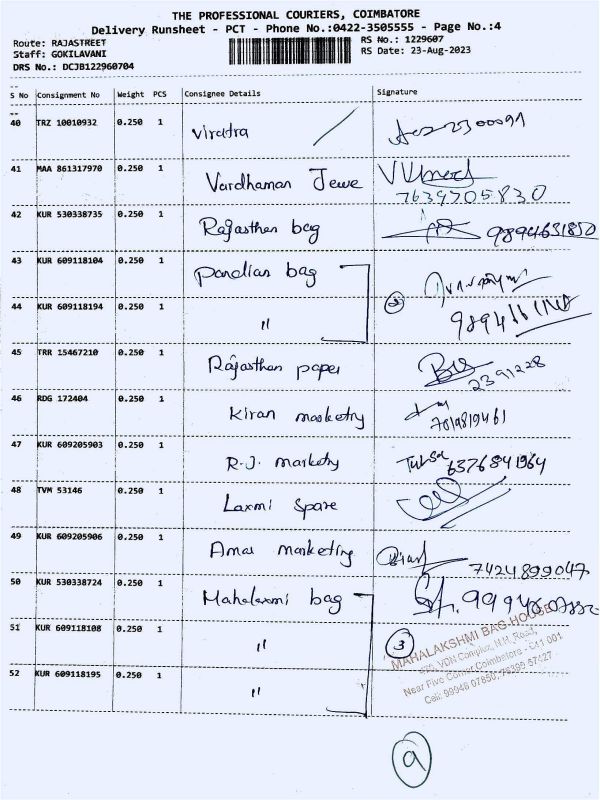 THE PROFESSIONAL COURIERS, COIMBATORE
Delivery Runsheet - PCT - Phone No.:0422-3505555 - Page No.:4
Route: RAJASTREET RS No.: 1229607
Staff: GOKILAVANI RS Date: 23-Aug-2023
DRS No.: DCJB122960704
S No Consignment No Weight PCS Consignee Details Signature
40 TRZ 10010932 0.250 1 Viratra
41 MAA 861317970 0.250 1 Vardhaman Jewe
7639705830
42 KUR 530338735 0.250 1 Rajasthan bag 9894631850
43 KUR 609118104 0.250 1 Pandian bag
44 KUR 609118194 0.250 1 "
2
45 TRR 15467210 0.250 1 Rajasthan paper
2391228
46 RDG 172404 0.250 1 Kiran marketry
7019819461
47 KUR 609205903 0.250 1 R.J. markety Tulsa 6376841964
48 TVM 53146 0.250 1 Laxmi Spare
49 KUR 609205906 0.250 1 Amar marketing
7424899047
50 KUR 530338724 0.250 1 Mahalaxmi bag
51 KUR 609118108 0.250 1 "
3
MAHALAKSHMI BAG HOUSE
VDN Complex, N.H. Road,
Near Five Corner, Coimbatore - 641 001
Cell: 99948 07850, 76399 57427
52 KUR 609118195 0.250 1 "
9